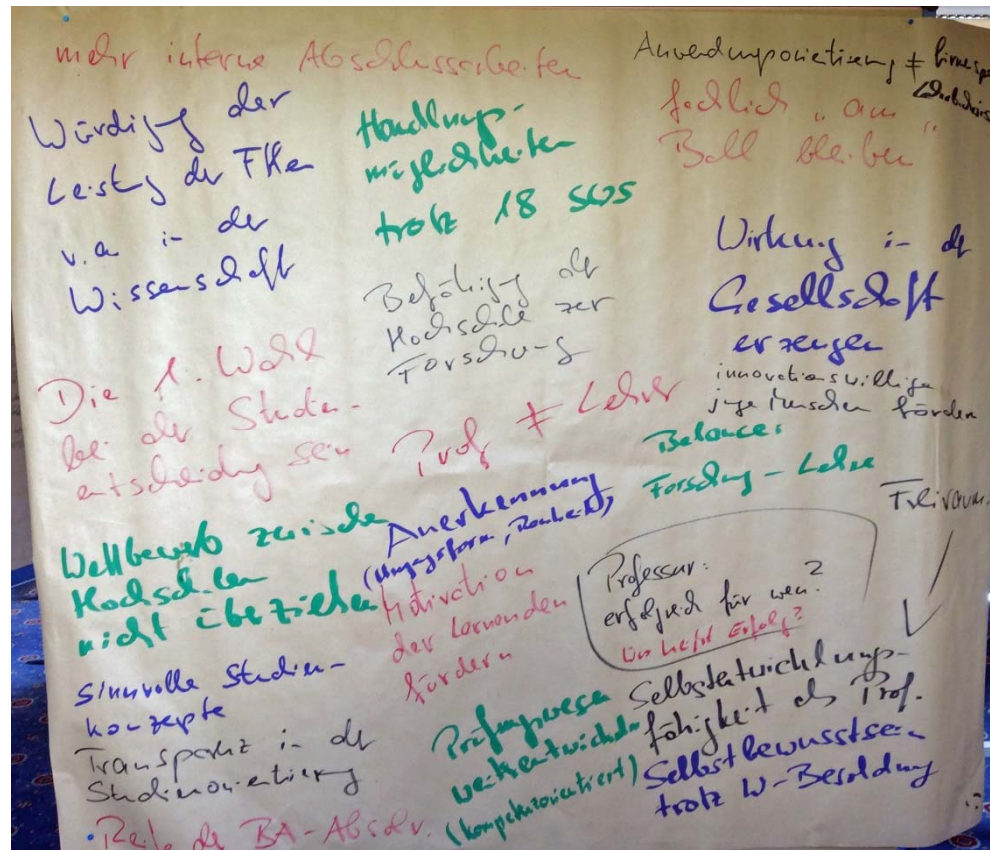 mehr interne Abschlussarbeiten
Würdigung der
Leistung der FHen
v.a. in der
Wissenschaft
Handlungs-
möglichkeiten
trotz 18 SWS
Anwendungsorientierung ≠
fachlich "am
Ball bleiben"
Befähigung der
Hochschule zur
Forschung
Wirkung in der
Gesellschaft
erzeugen
innovationswillige
junge Menschen fördern
Die 1. Wahl
bei der Studien-
entscheidung sein
Prof ≠ Lehrer
Balance:
Forschung - Lehre
Freiraum
Wettbewerb zwischen
Hochschulen
nicht überziehen
Anerkennung
(Umgangsform,
Motivation
der Lernenden
fördern
Professur:
erfolgreich für wen?
Was heißt Erfolg?
Sinnvolle Studien-
konzepte
Transparenz in der
Studienorientierung
Prüfungswesen
weiterentwickeln
(kompetenzorientiert)
Selbstentwicklungs-
fähigkeit als Prof.
Selbstbewusstsein
trotz W-Besoldung
• Reife der BA-Absolv.